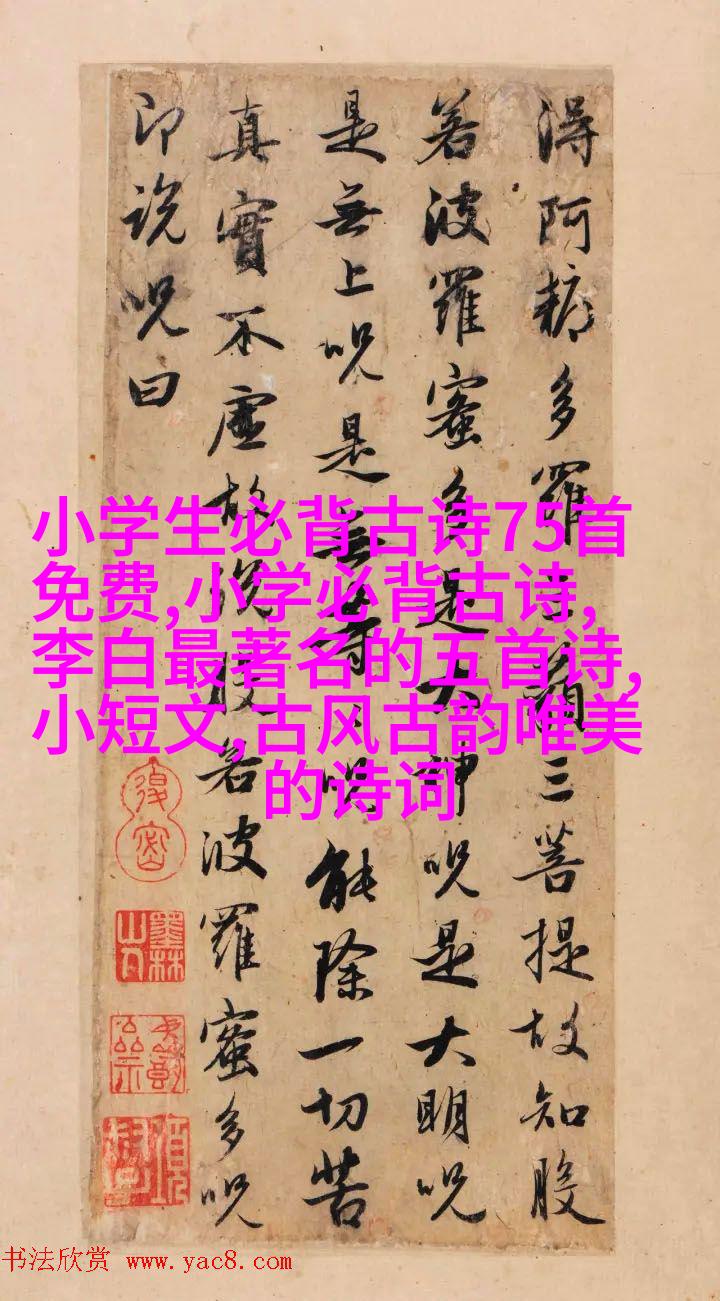 得阿耨多羅三藐三菩提故知般
若波羅蜜多是大神呪是大明呪
是無上呪是無等々呪能除一切苦
真實不虛故說般若波羅蜜多呪
即說呪曰
小学生必背古诗75首
免费,小学必背古诗,
李白最著名的五首诗,
小短文,古风古韵唯美
的诗词
墨林
山人
书法欣赏 www.yac8.com